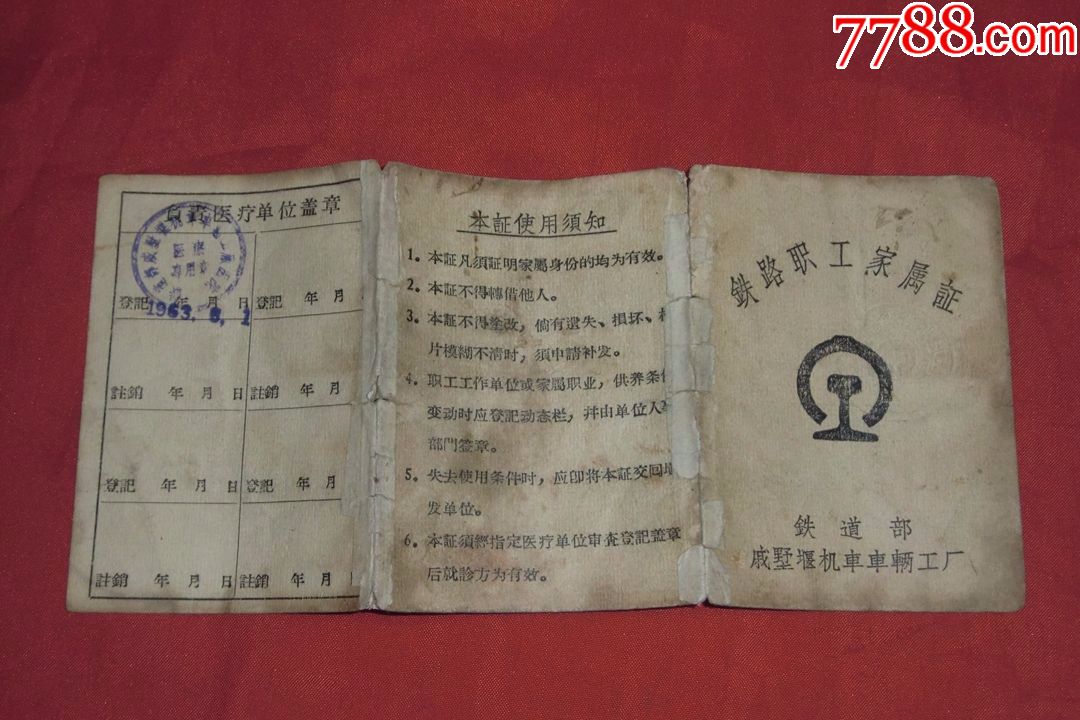 7788.com
負責医疗单位盖章
登記 年 月 日 登記 年 月
1963. 8. 1
註銷 年 月 日 註銷 年 月
登記 年 月 日 登記 年 月
註銷 年 月 日 註銷 年 月
本証使用須知
1。本証凡須証明家屬身份的均为有效。
2。本証不得轉借他人。
3。本証不得塗改，倘有遺失、損坏、相
片模糊不清时，須申請补发。
4。职工工作单位或家屬职业，供养条件
变动时应登記动态栏，幷由单位人事
部門签章。
5。失去使用条件时，应卽将本証交回填
发单位。
6。本証須經指定医疗单位审查登記盖章
后就診方为有效。
鉄路职工家属証
鉄道部
戚墅堰机車車輛工厂